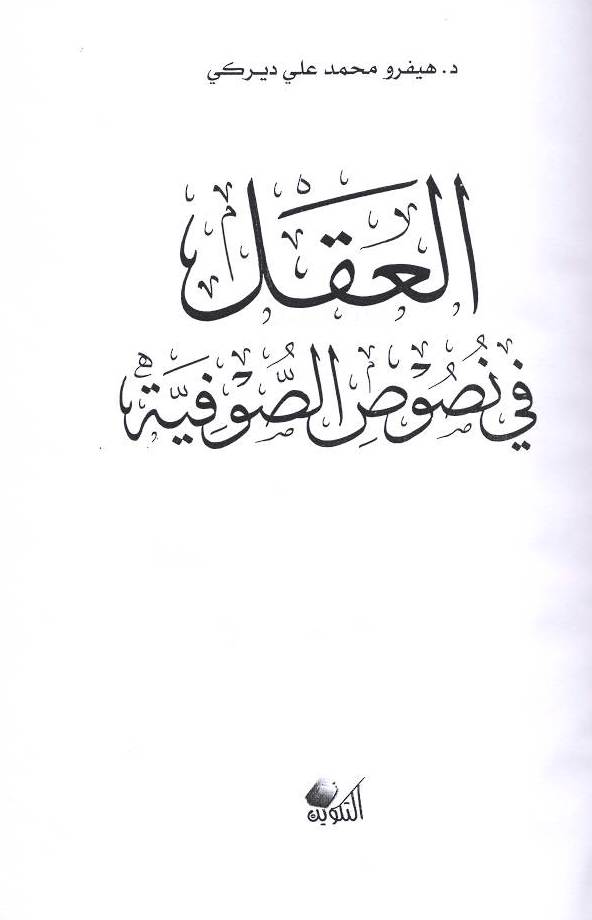 د. هيفرو محمد علي ديركي
العَقل
في نُصُوْصِ الصُّوْفِيَّة
التكوين